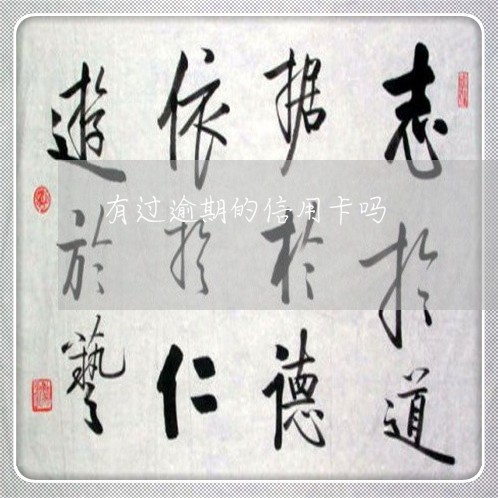 志於道
据於德
依於仁
遊於藝
有过逾期的信用卡吗